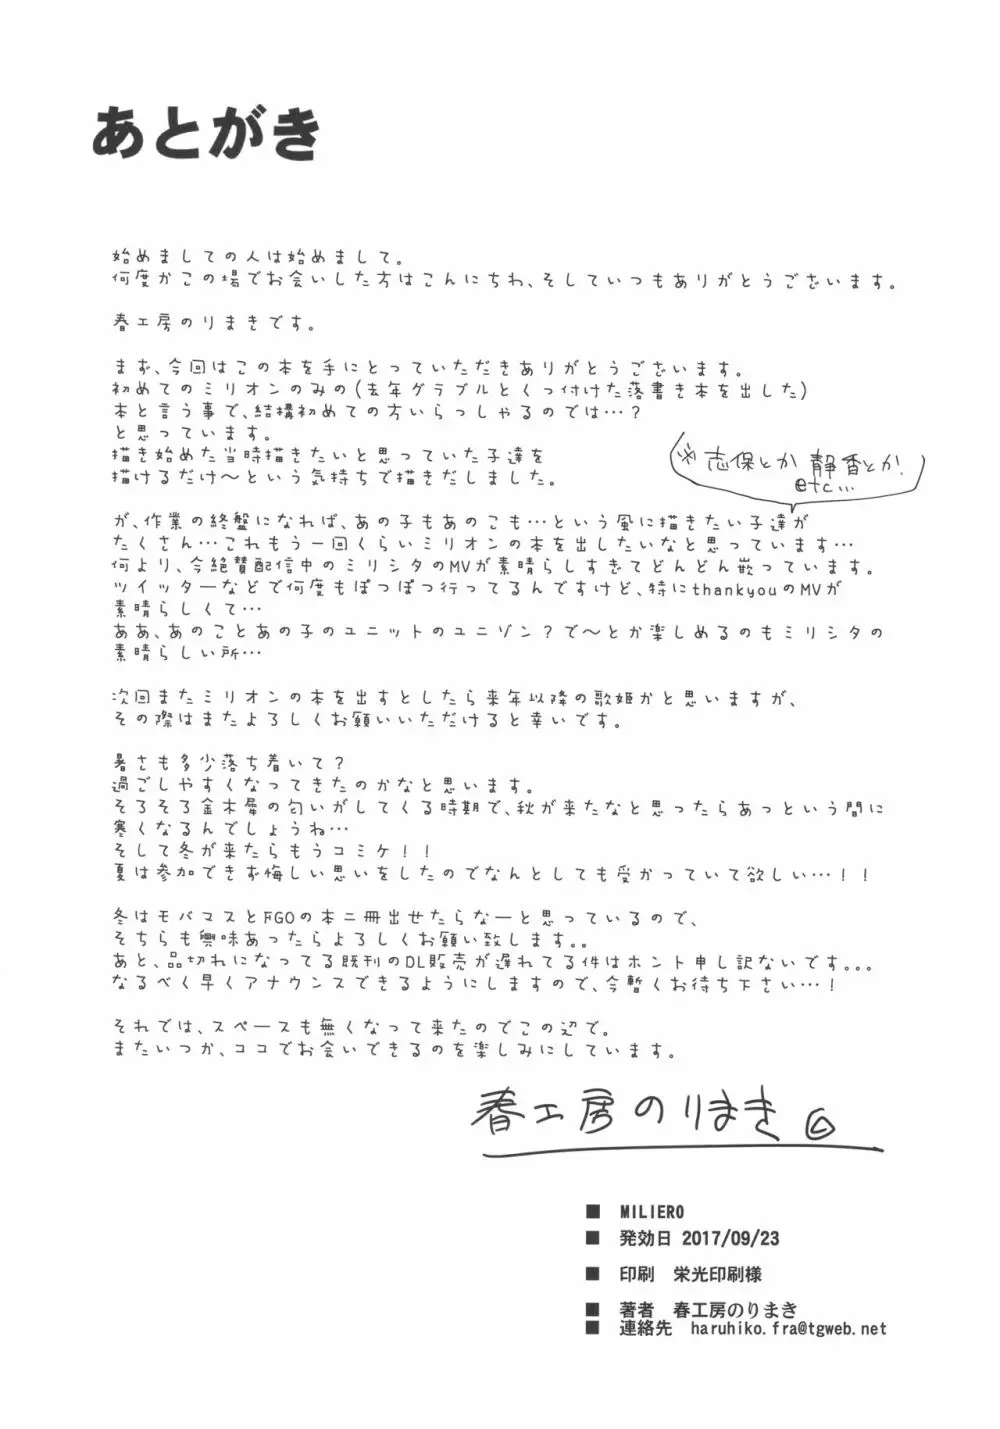 あとがき
始めましての人は始めまして。
何度かこの場でお会いした方はこんにちわ、そしていつもありがとうございます。
春工房のりまきです。
まず、今回はこの本を手にとっていただきありがとうございます。
初めてのミリオンのみの(去年グラブルとくっ付けた落書き本を出した)
本と言う事で、結構初めての方いらっしゃるのでは…?
と思っています。
描き始めた当時描きたいと思っていた子達を
描けるだけ〜という気持ちで描きだしました。
※志保とか 静香とか!
etc...
が、作業の終盤になれば、あの子もあのこも…という風に描きたい子達が
たくさん…これもう一回くらいミリオンの本を出したいなと思っています…
何より、今絶賛配信中のミリシタのMVが素晴らしすぎてどんどん嵌っています。
ツイッターなどで何度もぽつぽつ行ってるんですけど、特にthankyouのMVが
素晴らしくて…
ああ、あのことあの子のユニットのユニゾン?で〜とか楽しめるのもミリシタの
素晴らしい所…
次回またミリオンの本を出すとしたら来年以降の歌姫かと思いますが、
その際はまたよろしくお願いいただけると幸いです。
暑さも多少落ち着いて?
過ごしやすくなってきたのかなと思います。
そろそろ金木犀の匂いがしてくる時期で、秋が来たなと思ったらあっという間に
寒くなるんでしょうね…
そして冬が来たらもうコミケ!!
夏は参加できず悔しい思いをしたのでなんとしても受かっていて欲しい…!!
冬はモバマスとFGOの本二冊出せたらなーと思っているので、
そちらも興味あったらよろしくお願い致します。。
あと、品切れになってる既刊のDL販売が遅れてる件はホント申し訳ないです。。。
なるべく早くアナウンスできるようにしますので、今暫くお待ち下さい…!
それでは、スペースも無くなって来たのでこの辺で。
またいつか、ココでお会いできるのを楽しみにしています。
春工房のりまき
■ MILIERO
■ 発効日 2017/09/23
■ 印刷 栄光印刷様
■ 著者 春工房のりまき
■ 連絡先 haruhiko.fra@tgweb.net